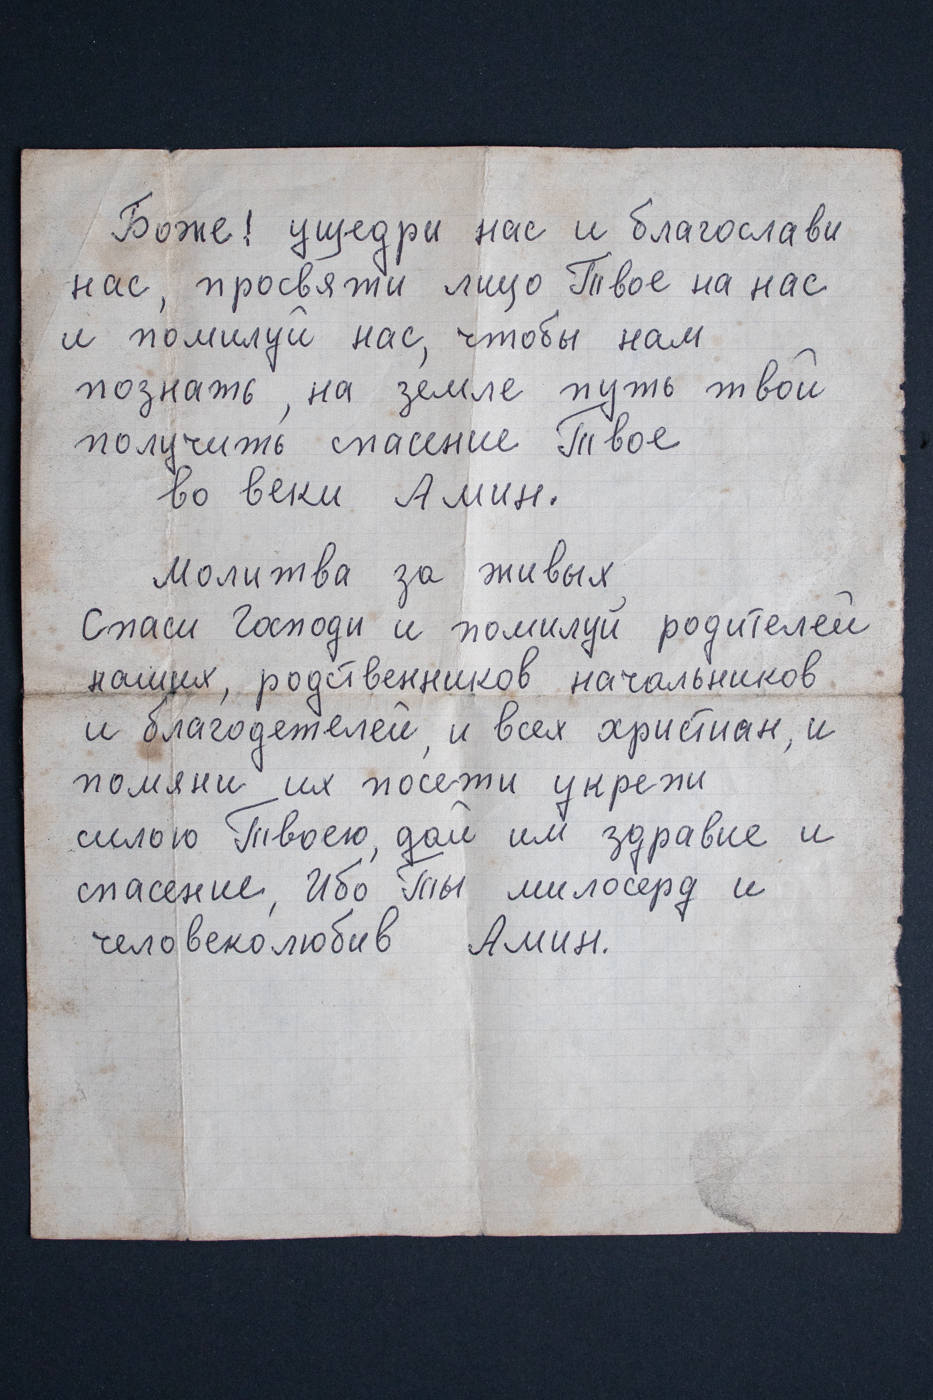 Боже! ущедри нас и благослави
нас, просвяти лицо Твое на нас
и помилуй нас, чтобы нам
познать, на земле путь твой
получить спасение Твое
во веки Амин.
Молитва за живых
Спаси Господи и помилуй родителей
наших, родственников начальников
и благодетелей, и всех христиан, и
помяни их посети укрепи
силою Твоею, дай им здравие и
спасение, Ибо Ты милосерд и
человеколюбив Амин.